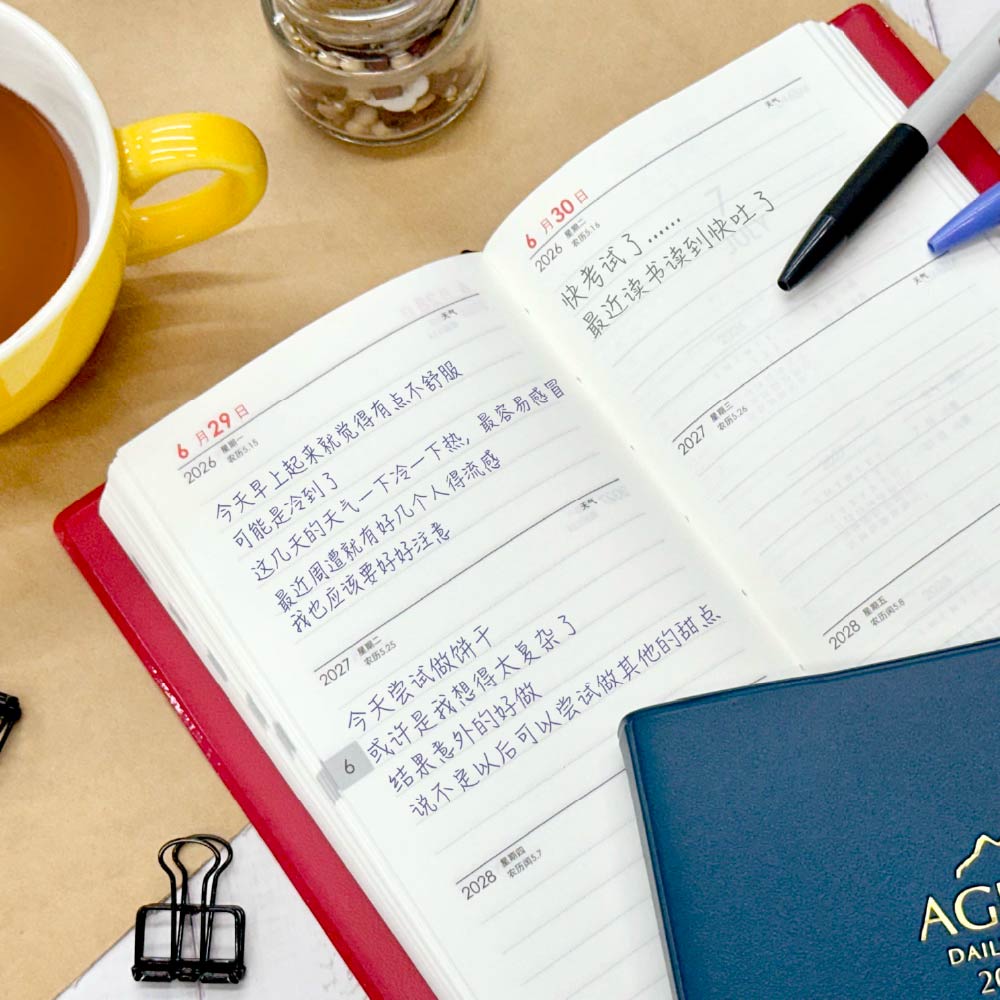 6月29日
天气
2026
星期一
农历5.15
今天早上起来就觉得有点不舒服
可能是冷到了
这几天的天气一下冷一下热，最容易感冒
最近周遭就有好几个人得流感
我也应该要好好注意
天气
2027
星期二
农历5.25
今天尝试做饼干
或许是我想得太复杂了
结果意外的好做
说不定以后可以尝试做其他的甜点
6
2028
星期四
农历闰5.7
6月30日
天气
2026
星期二
农历5.16
快考试了......
最近读书读到快吐了
天气
2027
星期三
农历5.26
2028
星期五
农历闰5.8